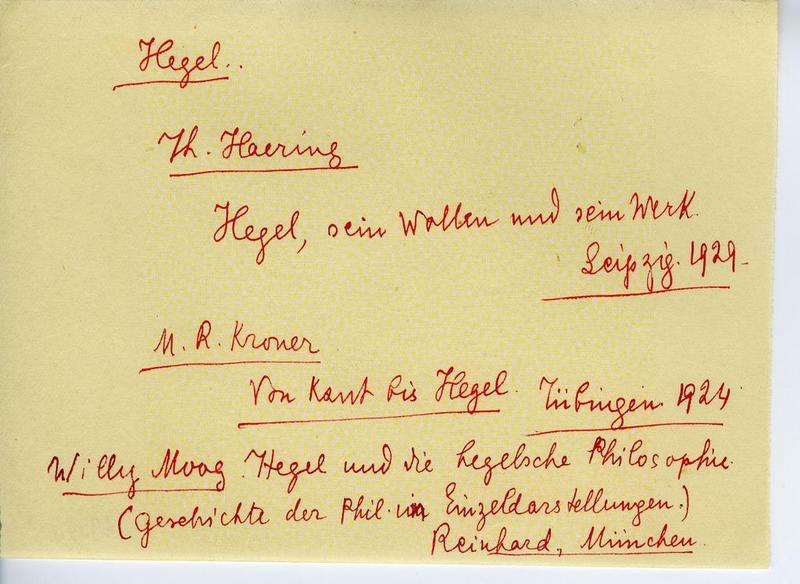 Hegel..
Th. Haering
Hegel, sein Wollen und sein Werk.
Leipzig. 1929-
M. R. Kroner
Von Kant bis Hegel. Tübingen. 1924
Willy Moog. Hegel und die hegelsche Philosophie.
(Geschichte der Phil. in Einzeldarstellungen.)
Reinhard, München.